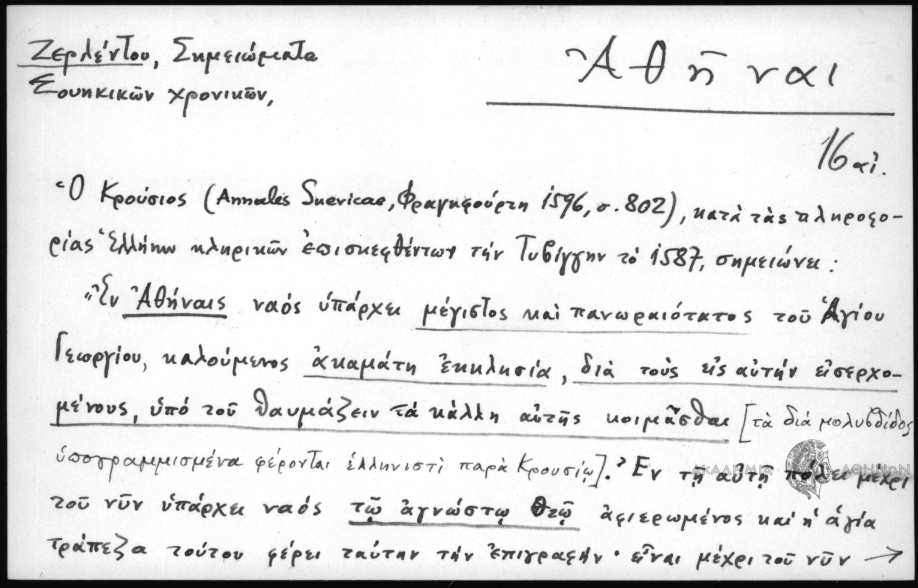 Ζερλέντου, Σημειώματα
Σουηκικῶν χρονικῶν,
Ἀθῆναι
16 αἰ.
Ὁ Κρούσιος (Annales Suevicae, Φραγκφούρτη 1596, σ. 802), κατὰ τὰς πληροφο-
ρίας Ἑλλήνων κληρικῶν ἐπισκεφθέντων τὴν Τυβίγγην τὸ 1587, σημειώνει :
"Ἐν Ἀθήναις ναός ὑπάρχει μέγιστος καὶ πανωραιότατος τοῦ Ἁγίου
Γεωργίου, καλούμενος ἀκαμάτη ἐκκλησία, διὰ τοὺς εἰς αὐτὴν εἰσερχο-
μένους, ὑπὸ τοῦ θαυμάζειν τὰ κάλλη αὐτῆς κοιμᾶσθαι [τὰ διὰ μολυβδίδος
ὑπογραμμισμένα φέρονται ἑλληνιστὶ παρὰ Κρουσίῳ]. Ἐν τῇ αὐτῇ πόλει μέχρι
ΑΚΑΔΗΜΙΑ ΑΘΗΝΩΝ
τοῦ νῦν ὑπάρχει ναός τῷ ἀγνώστῳ Θεῷ ἀφιερωμένος καὶ ἡ ἁγία
τράπεζα τούτου φέρει ταύτην τὴν ἐπιγραφήν· εἶναι μέχρι τοῦ νῦν →